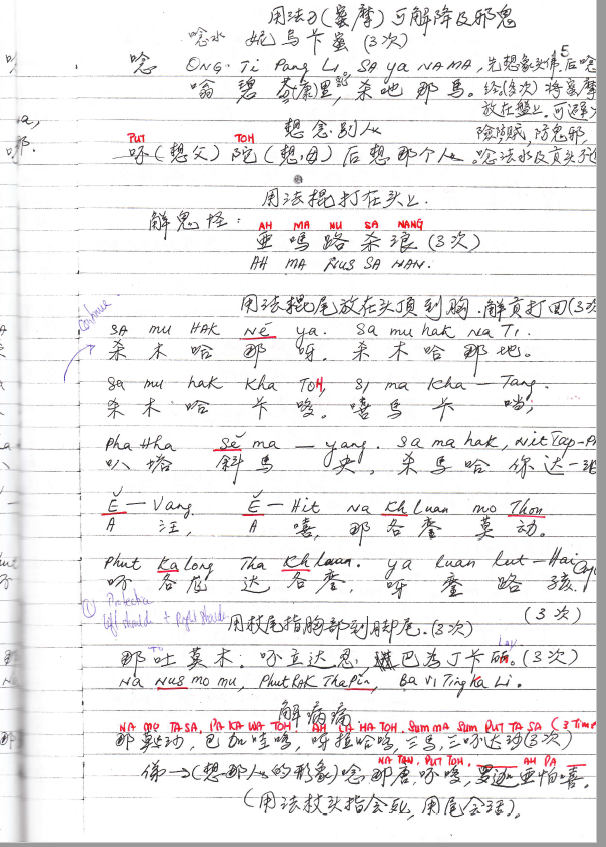 用法刀(蜜摩)可解降及邪鬼
唸水 妮乌卡蜜 (3次)
5
唸 ONG. Ti Pang Li, SA ya NAMA, 先想象头佛,后唸
嗡 碧 里, 杀吔那馬。 给(3次)将蜜摩
放在盤上.可避
想念別人
PUT TOH
呸(想父)陀(想母)后想那个人。唸法水及
用法棍打在头上.
解鬼怪:
AH MA NU SA NANG
亚 嗎 路 杀 浪 (3次)
AH MA NUS SA NAN.
用法棍尾放在头頂到胸.解貢打回(3次
continue
SA mu HAK Né ya. Sa mu hak Na Ti.
杀 木 哈 那 呀. 杀 木 哈 那 地。
Sa mu hak Kha TOH, Si ma Kha — Tang.
杀 木 哈 卡 哆, 嘻 馬 卡 噹;
Pha Hha Sĕ ma — yang. Sa ma hak, Nit Tap-P
叭 塔 斜 馬 央, 杀 馬 哈 你 达 一
Ĕ — Vang Ĕ — Hit Na Kh Luan mo Thon
A 汪, A 嘻, 那 各 銮 莫 动。
Phut Ka long Tha Kh luan. ya luan lut — Hai
呸 各 龙 达 各 銮, 呀 銮 路 孩.
① Protection
left shoulder + Right shoulder
(3次)
用杖尾指胸部到脚尾.(3次)
Lay
那吐莫木. 呸立达思, 巴为丁卡丽。(3次)
Na Nus mo mu, Phut RAK Tha Pin, Ba Vi Ting Ka Li.
解病痛
NA MO TA SA, PA KA WA TOH, AH LA HA TOH. Sum ma Sum PUT TA SA (3 Time
那莫达沙, 巴加哇哆, 呀拉哈哆, 三馬,三呸达沙(3次)
NA TAN, PUT TOH, AH PA
係→(想那人的形象)唸那唐,呸哆, 亚怕嘻。
(用法杖头指会死,用尾会活)。